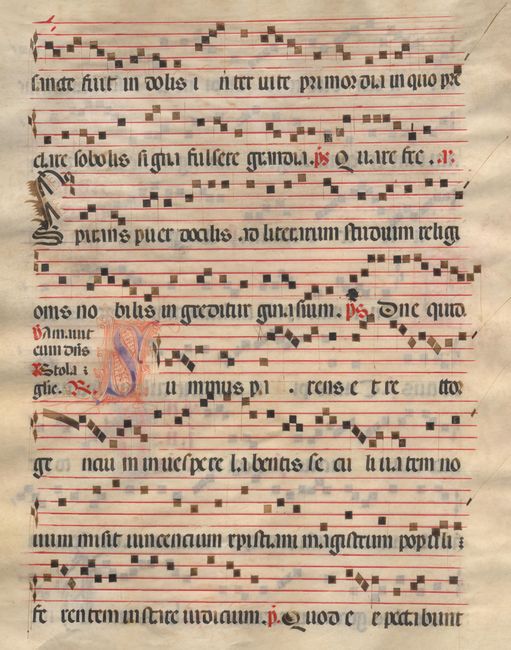 sancte fuit in dolis i n ter uite primordia in quo pre
clare sobolis signa fulsere grandia. ps Quare fre
Spirans puer docilis ad litterarum studium religi
onis nobilis ingreditur gimasium. ps. Dne quid
v Amauit
cum dñs
R Stola
glie. R. Summus pa rens et re ctor
ge ncium in uespere labentis secu li uatem no
uum misit uincencium xpistiani magistrum populi
fe rentem instare iudicium. p. Quod e xpectabunt